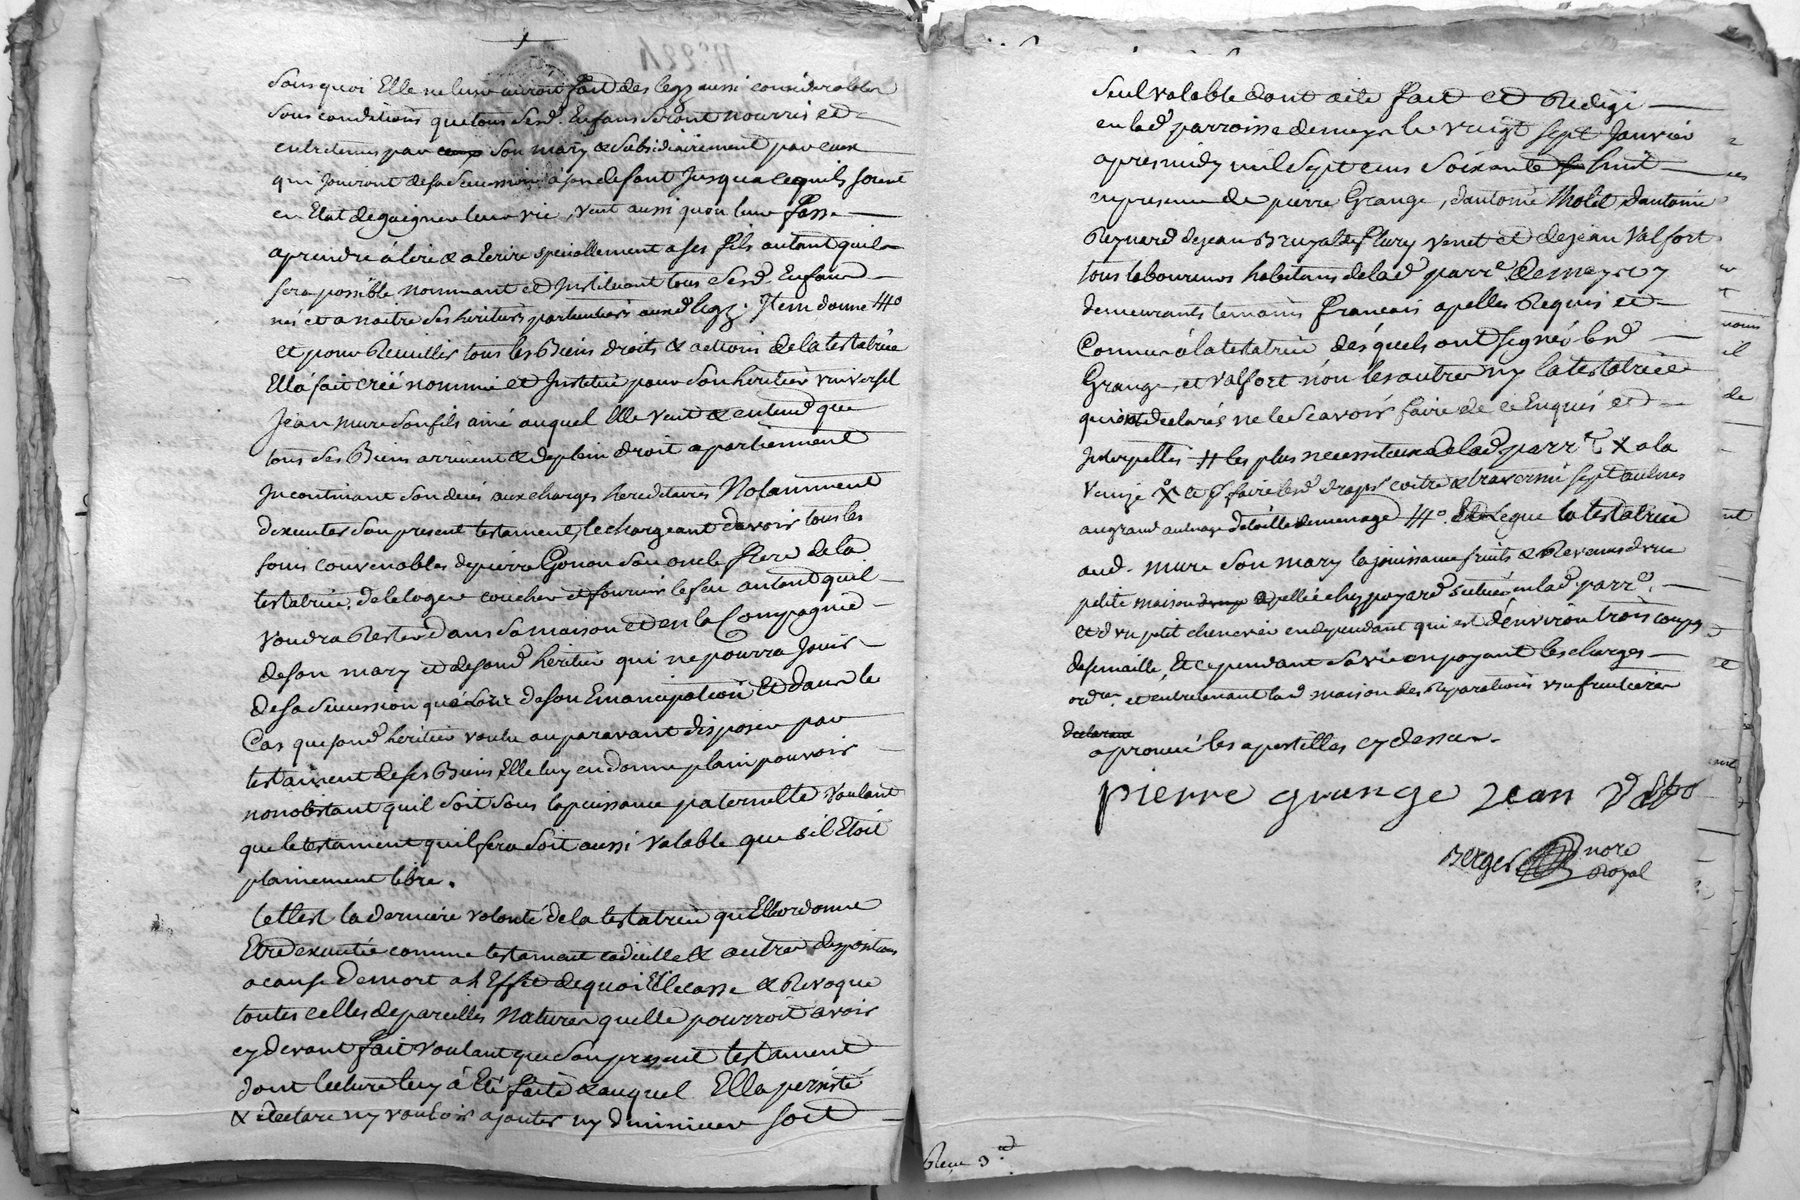 sans quoi Elle ne leur auroit fait des legs aussi considerables
sous conditions que tous sesd. Enfans seront nourris et
entretenus par son mary & subsidiairement par ceux
qui jouiront de sa succession à son defaut jusqua ce quils soient
en Etat de gaigner leur vie, veut aussi qu'on leur fasse
aprendre à lire & a Ecrire speciallement a ses fils autant quil
sera possible nommant et Instituant tous sesd. Enfans
nés et a naitre ses heritiers particuliers auxd legs. Item donne #°
et pour Recuillir tous les Biens droits & actions de la testatrice
Ella fait créé nommé et Institué pour son heritier universel
Jean mure son fils ainé auquel Elle veut & entend que
tous ses Biens arrivent & de plein droit apartiennent
Incontinant son decés aux charges hereditaires Notamment
dexecuter son present testament, le chargeant davoir tous les
soins convenables de pierre Gonon son oncle frere de la
testatrice, de le loger coucher et fournir le feu autant quil
voudra Rester dans sa maison et en la Compagnie
de son mary et de sond heritier qui ne pourra Jouir
de sa succession qua lors de son Emancipation Et dans le
Cas que sond heritier voulu auparavant disposer par
testament de ses Biens Elle luy en donne plain pouvoir
nonobstant quil soit sous la puissance paternelle voulant
que le testament quil fera soit aussi valable que sil Etoit
plainement libre.
telle est la derniere volonté de la testatrice qu'Elle ordonne
Etre executée comme testament codicille & autres dispositions
a cause de mort a l'Effet de quoi Elle casse & Revoque
toutes celles de pareilles Natures quelle pourroit avoir
cy devant fait voulant que son present testament
dont lecture luy à Eté faite & auquel Ella persisté
& declaré ny vouloir ajouter ny diminuer soit
seul valable dont acte fait et Redigé
en lad parroisse de le vingt sept Janvier
apres midy mil sept cens soixante huit
en presence de pierre Grange, dantoine Molet dantoine
Reynard de jean Bruyas de flury venet et de jean Valfort
tous laboureurs habitans de lad parr.e de et y
demeurants temoins francois apellés Requis et
Connus à la testatrice désquels ont signés lesd
Grange, et valfort non les autres ny la testatrice
qui ont declarés ne le scavoir faire de ce Enquis et
Interpellés # les plus necessiteux de lad. parr.e X a la
X et p.r faire lesd draps coitre & traversin sept aulnes
au grand aunage detoille de menage #° Legue la testatrice
aud. mure son mary la jouissance fruits & Revenus dune
petite maison apellée chez poyard scituée en lad. parr.e
et d'un petit chenevier en dependant qui est d'environ trois coupes
de semaille, Et ce pendant sa vie en payant les charges
ord.res et entretenant lad maison des Reparations usufruitieres
aprouvé les apostilles cy dessus.
pierre grange Jean
Berger no.re
Royal
Reçu 3